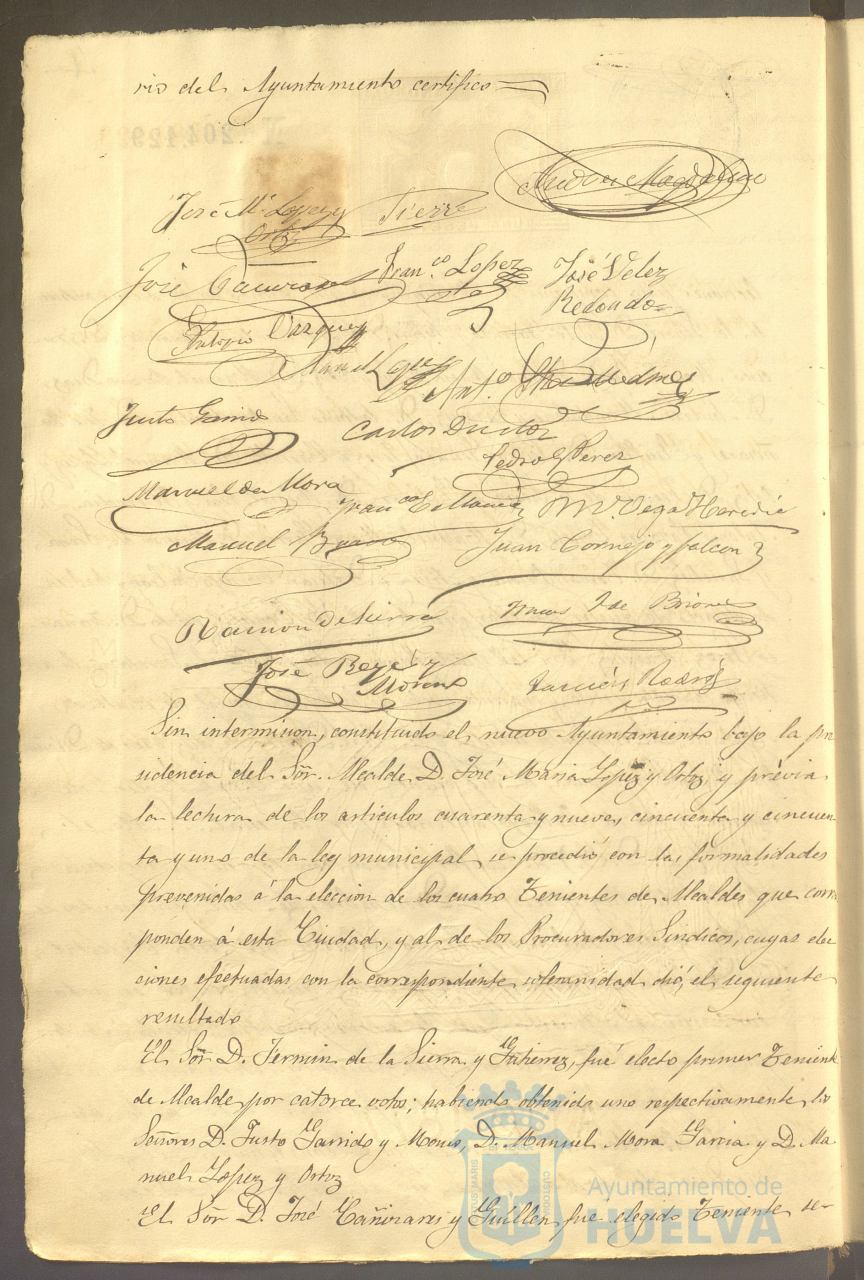 rio del Ayuntamiento certifico
José Mª Lopez y
Ortiz
Sierra
José
Franco. Lopez
José Velez
Redondo
Antonio Vazquez
Manuel Lopez
Anto.
Justo Garrido
Carlos Doctor
Pedro G Perez
Manuel de Mora
Franco
Ml. Vega Heredia
Manuel Bravo
Juan Cornejo y falcon
Ramon de Sierra
Marcos F de Briones
José
Moreno
Rodrz
Sin intermision, constituido el nuevo Ayuntamiento bajo la pre
sidencia del Sor. Alcalde D. José Maria Lopez y Ortiz, y prévia
la lectura de los articulos cuarenta y nueve, cincuenta y cincuen
ta y uno de la ley municipal se procedió con las formalidades
prevenidas á la eleccion de los cuatro Tenientes de Alcaldes que corres
ponden á esta Ciudad, y al de los Procuradores Sindicos, cuyas elec
ciones efectuadas con la correspondiente solemnidad dió, el seguiente
resultado
El Sor D. Fermin de la Sierra y Gutierrez, fué electo primer Teniente
de Alcalde por catorce votos; habiendo obtenido uno respectivamente, los
Señores D. Justo Garrido y Mones, D. Manuel Mora Garcia y D. Ma
nuel Lopez y Ortiz
El Sor D. José Cañizares y Guillen fue elegido Teniente se-
Ayuntamiento de
HUELVA